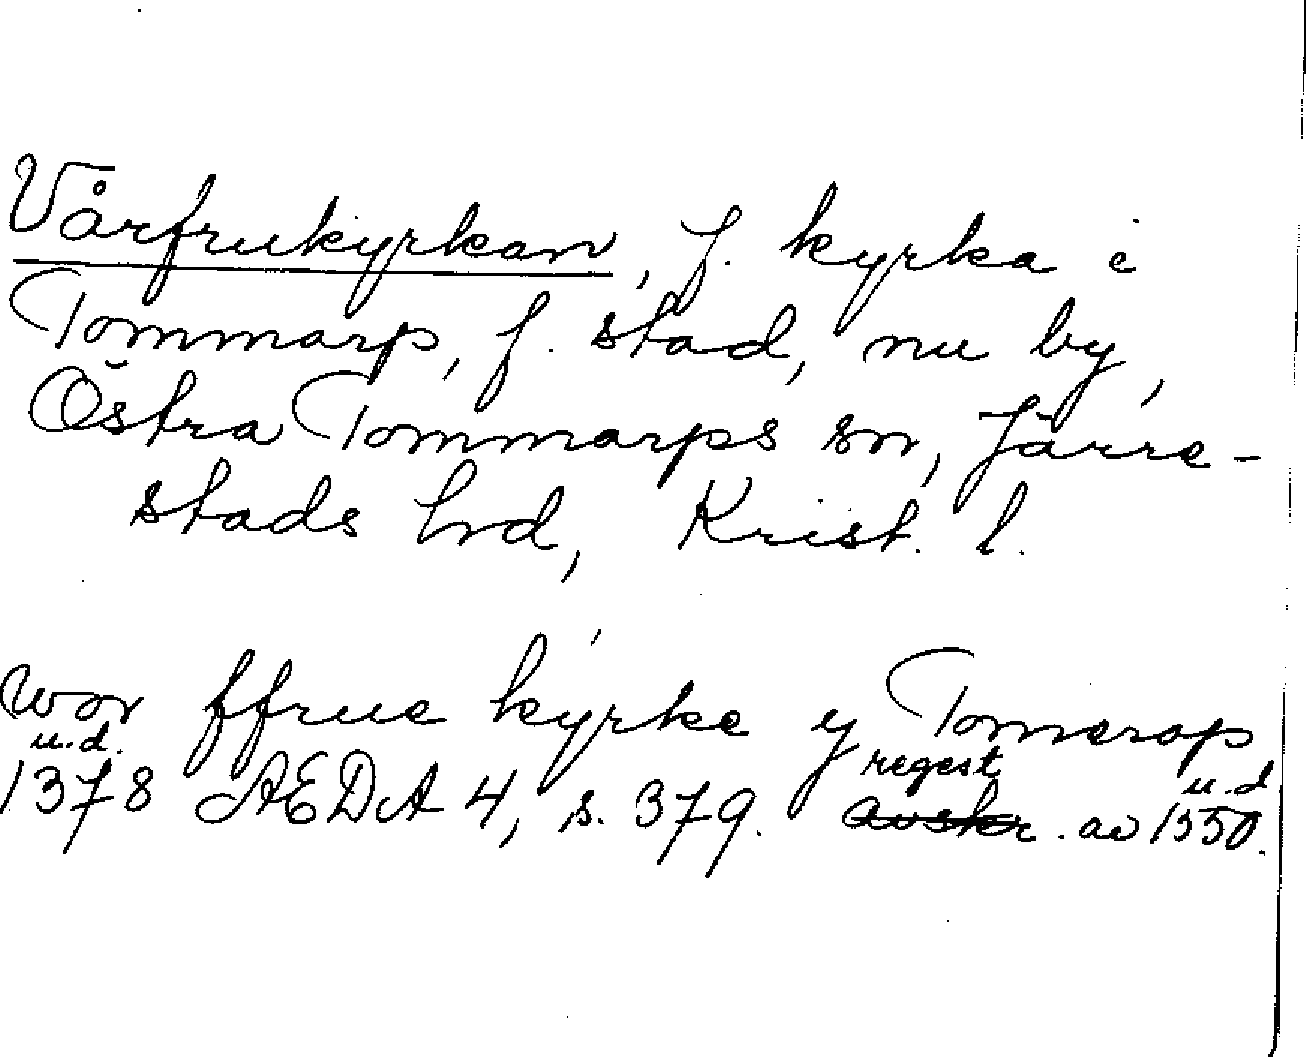 Vårfrukyrkan, f. kyrka i
Tommarp, f. stad, nu by,
Östra Tommarps sn, Järre-
stads hrd, Krist. l.
Wor ffrue kyrke y Tomerap
u.d. regest u.d
1378 AEDA 4, s. 379. avskr. av 1550.